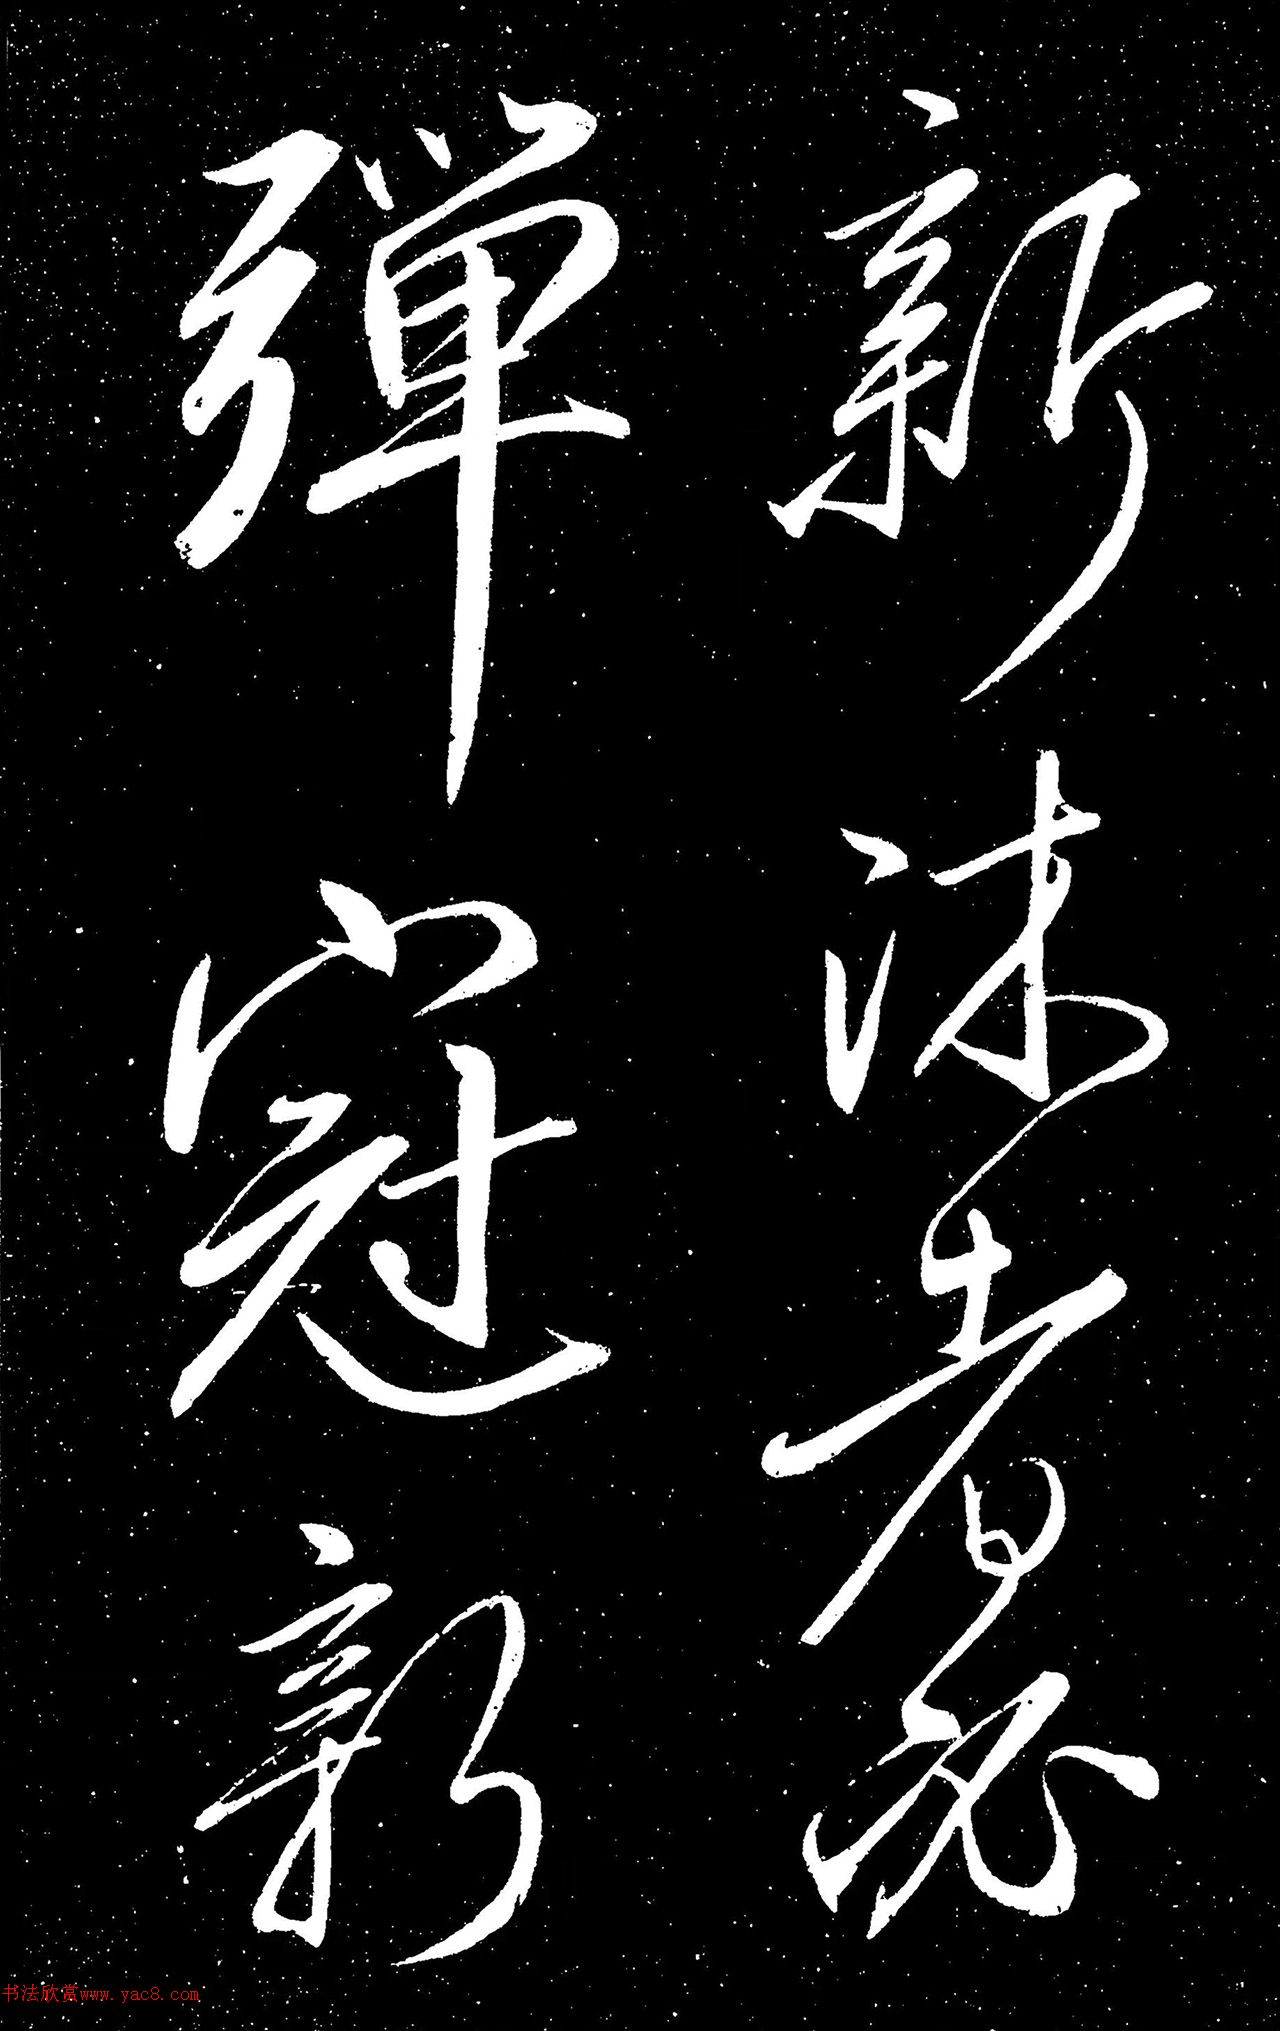 新沐者必
彈冠新
书法欣赏www.yac8.com